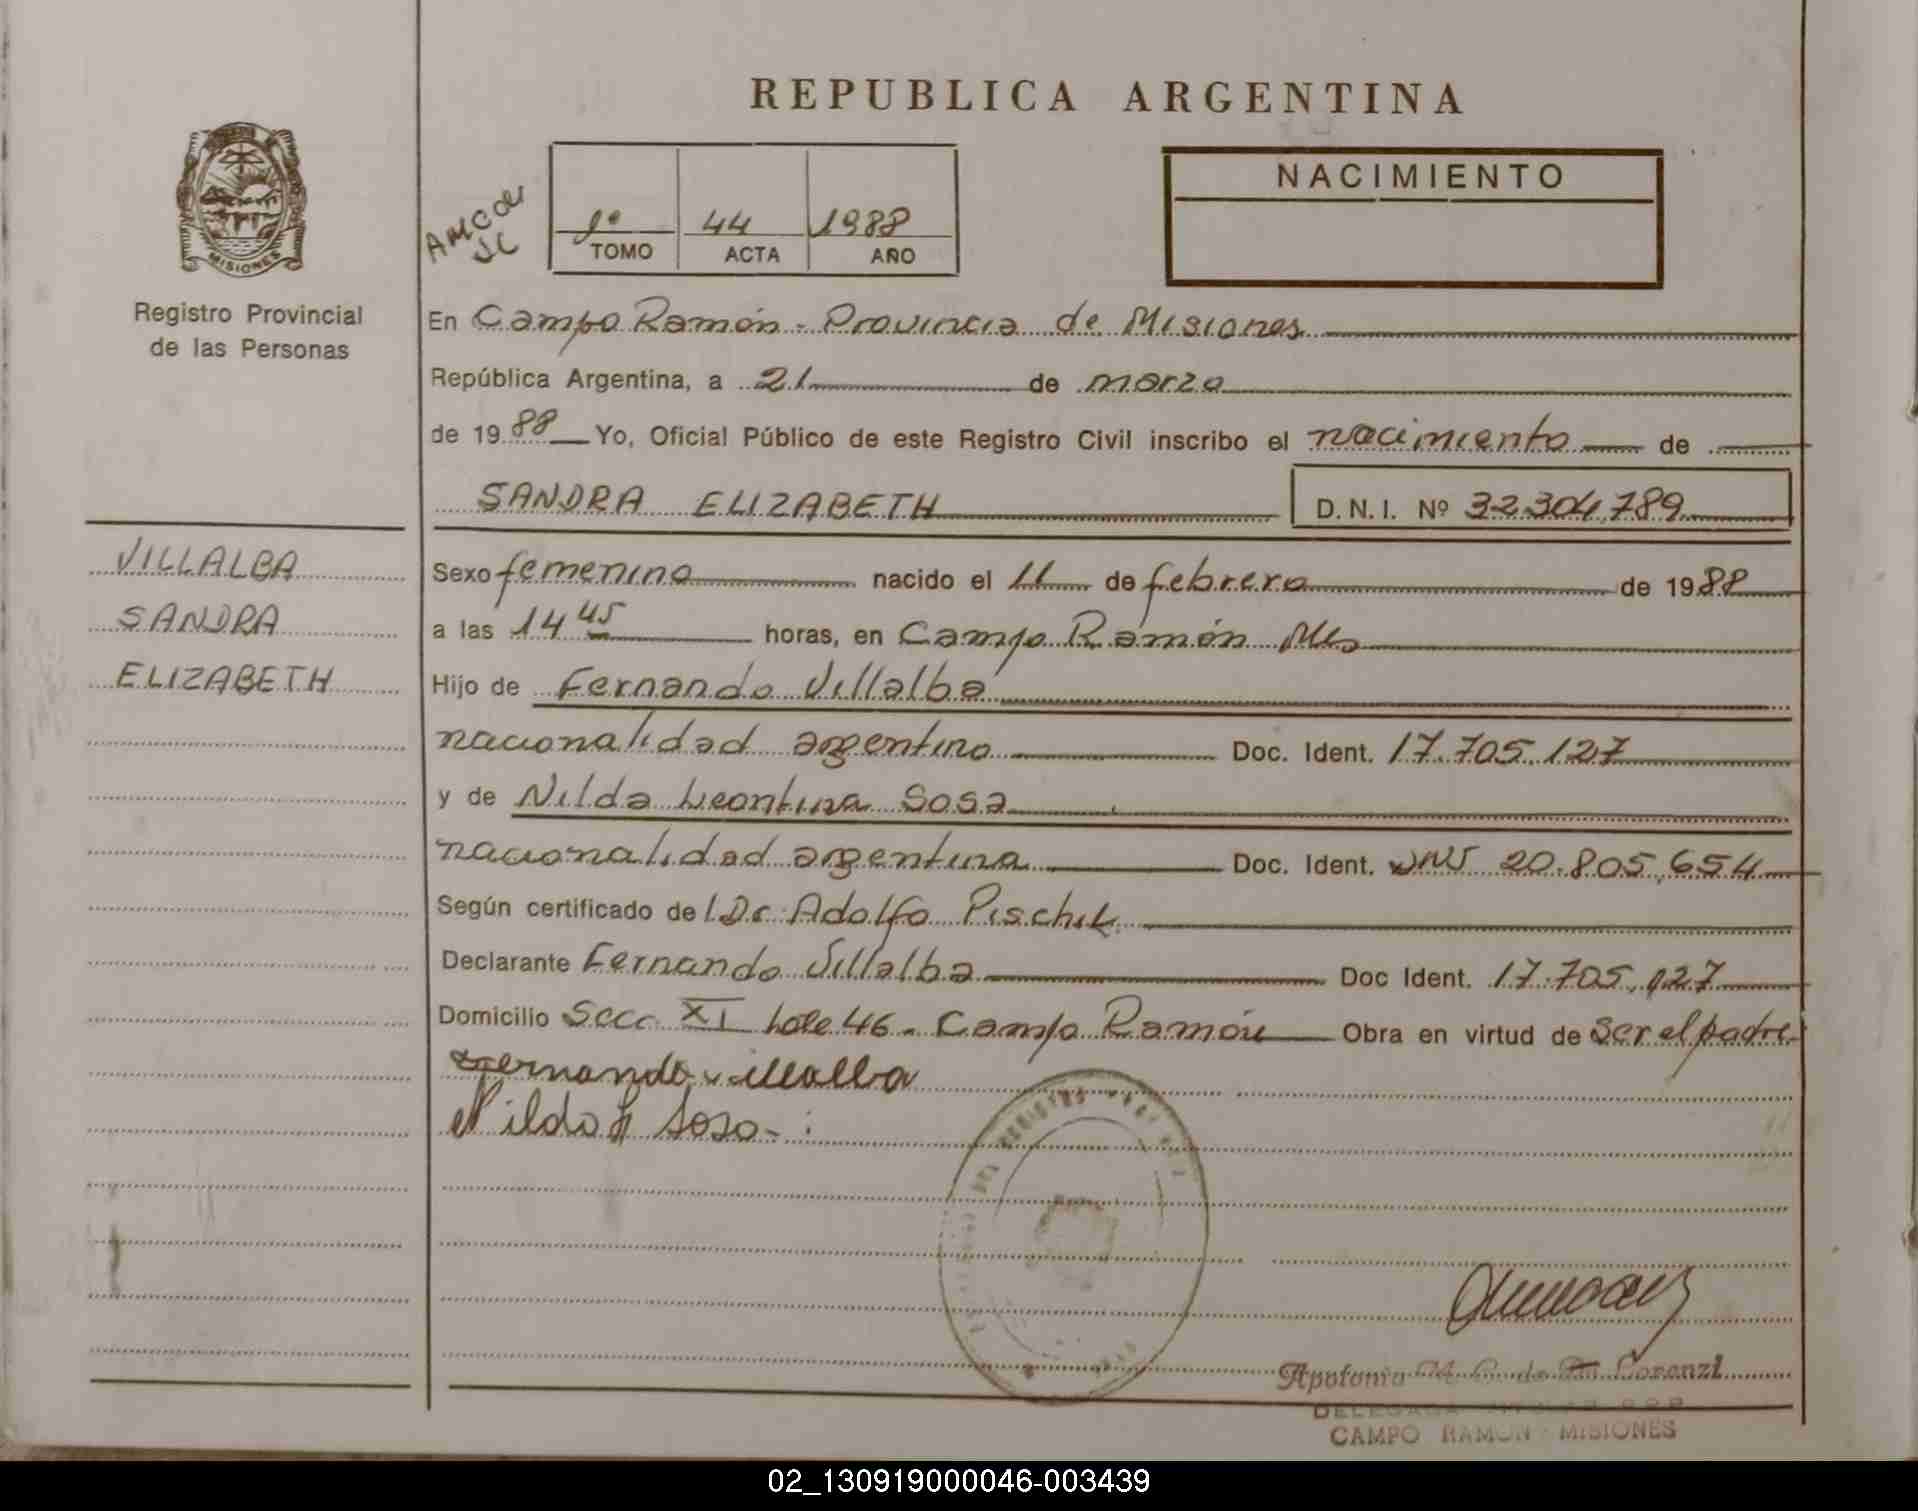 REPUBLICA ARGENTINA
MISIONES
Registro Provincial
de las Personas
1º 44 1988
TOMO ACTA AÑO
NACIMIENTO
En Campo Ramón - Provincia de Misiones
República Argentina, a 21 de marzo
de 1988 Yo, Oficial Público de este Registro Civil inscribo el nacimiento de
SANDRA ELIZABETH D.N.I. Nº 32.304.789
VILLALBA
SANDRA
ELIZABETH
Sexo femenino nacido el 11 de febrero de 1988
a las 14 45 horas, en Campo Ramón Mes
Hijo de Fernando Villalba
nacionalidad argentino Doc. Ident. 17.705.127
y de Nilda Leontina Sosa
nacionalidad argentina Doc. Ident. DNI 20.805.654
Según certificado del Dr. Adolfo
Declarante Fernando Villalba Doc Ident. 17.705.127
Domicilio Secc. XI Lote 46 - Campo Ramón Obra en virtud de Ser el padre
Fernando Villalba
Nilda L Sosa -
Apolonia M. C. de Lorenzi
DELEGADA
CAMPO RAMON - MISIONES
02_130919000046-003439